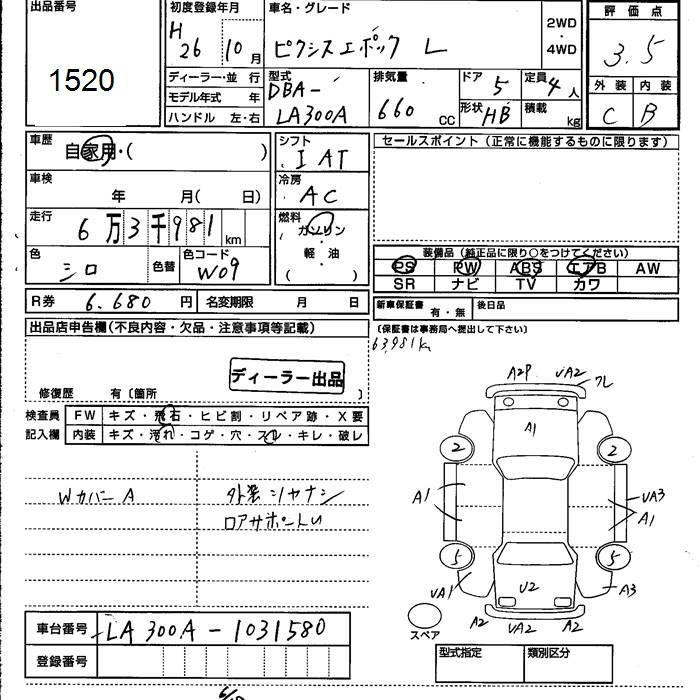 出品番号
1520
初度登録年月
H 26 10月
車名・グレード
ピクシスエポック L
2WD
・
4WD
評価点
3.5
ディーラー・並 行
モデル年式 年
ハンドル 左・右
型式
DBA-
LA300A
排気量
660 CC
ドア 5
形状 HB
定員 4人
積載 kg
外装 内装
C B
車歴
自家用・( )
車検
年 月( 日)
走行
6万3千981 km
色
シロ
色替
色コード
W09
シフト
I AT
冷房
AC
燃料
ガソリン
・
軽・油
( )
セールスポイント(正常に機能するものに限ります)
装備品(純正品に限り○をつけてください)
PS PW ABS エアB AW
SR ナビ TV カワ
R券 6.680 円 名変期限 月 日
新車保証書 有・無 後日品
(保証書は事務局へ提出して下さい)
63,981km
出品店申告欄(不良内容・欠品・注意事項等記載)
ディーラー出品
修復歴 有〔箇所 〕
検査員
記入欄
FW キズ・飛石・ヒビ割・リペア跡・X要
内装 キズ・汚れ・コゲ・穴・スレ・キレ・破レ
Wカバー A
ロアサポート
A2P UA2 フレ
A1
2 2
A1 UA3
A1
5 5
UA1 U2 A3
A2 UA2 A2
スペア
車台番号 LA300A-1031580
登録番号
型式指定 類別区分